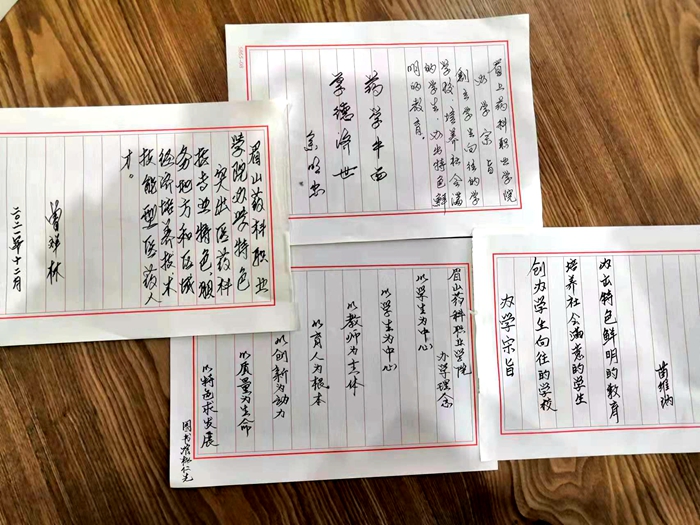 眉山药科职业学院
办学宗旨
创立学生向往的学
学校,培养社会满
的学生,办出特色鲜
明的教育。
药学半西
厚德济世
眉山药科职业
学院办学特色
突出医药科
技专业特色,服
务地方和区域
经济培养技术
技能型医药人
才。
曾祥林
二〇二一年十二月
眉山药科职业学院
办学理念
以学生为中心
以学生为中心
以教师为主体
以育人为根本
以创新为动力
以质量为生命
以特色求发展
图书馆 仁先
苗维纳
办出特色鲜明的教育
培养社会满意的学生
创为学生向往的学校
办学宗旨